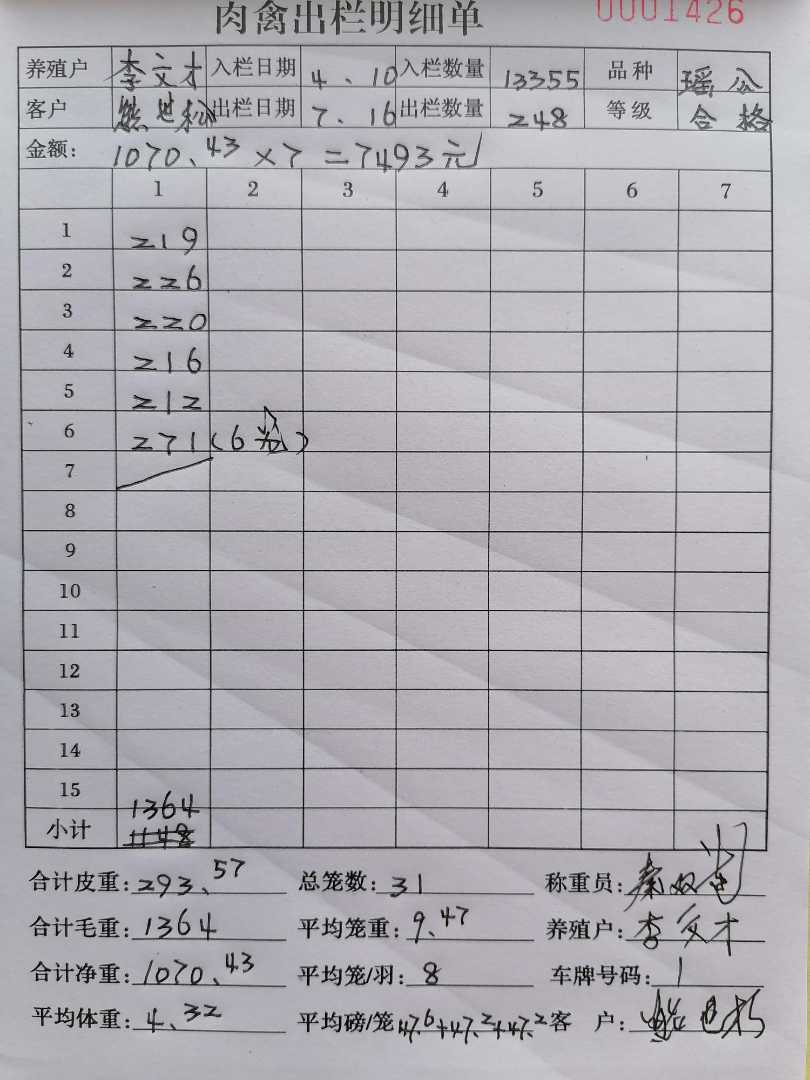 肉禽出栏明细单 0001426
养殖户 李文才 入栏日期 4.10 入栏数量 13355 品种 瑶公
客户 熊世松 出栏日期 7.16 出栏数量 248 等级 合格
金额: 1070.43×7=7493元
1 2 3 4 5 6 7
1 219
2 226
3 220
4 216
5 212
6 271(6笼)
7
8
9
10
11
12
13
14
15 1364
小计
合计皮重: 293.57 总笼数: 31 称重员: 秦
合计毛重: 1364 平均笼重: 9.47 养殖户: 李文才
合计净重: 1070.43 平均笼/羽: 8 车牌号码: 1
平均体重: 4.32 平均磅/笼 47.6+47.2+47.2 客 户: